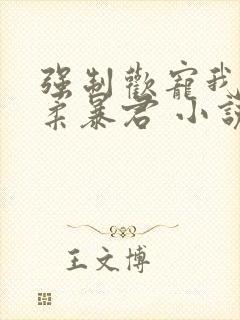 强制歡寵我
柔暴君 小說
王文博